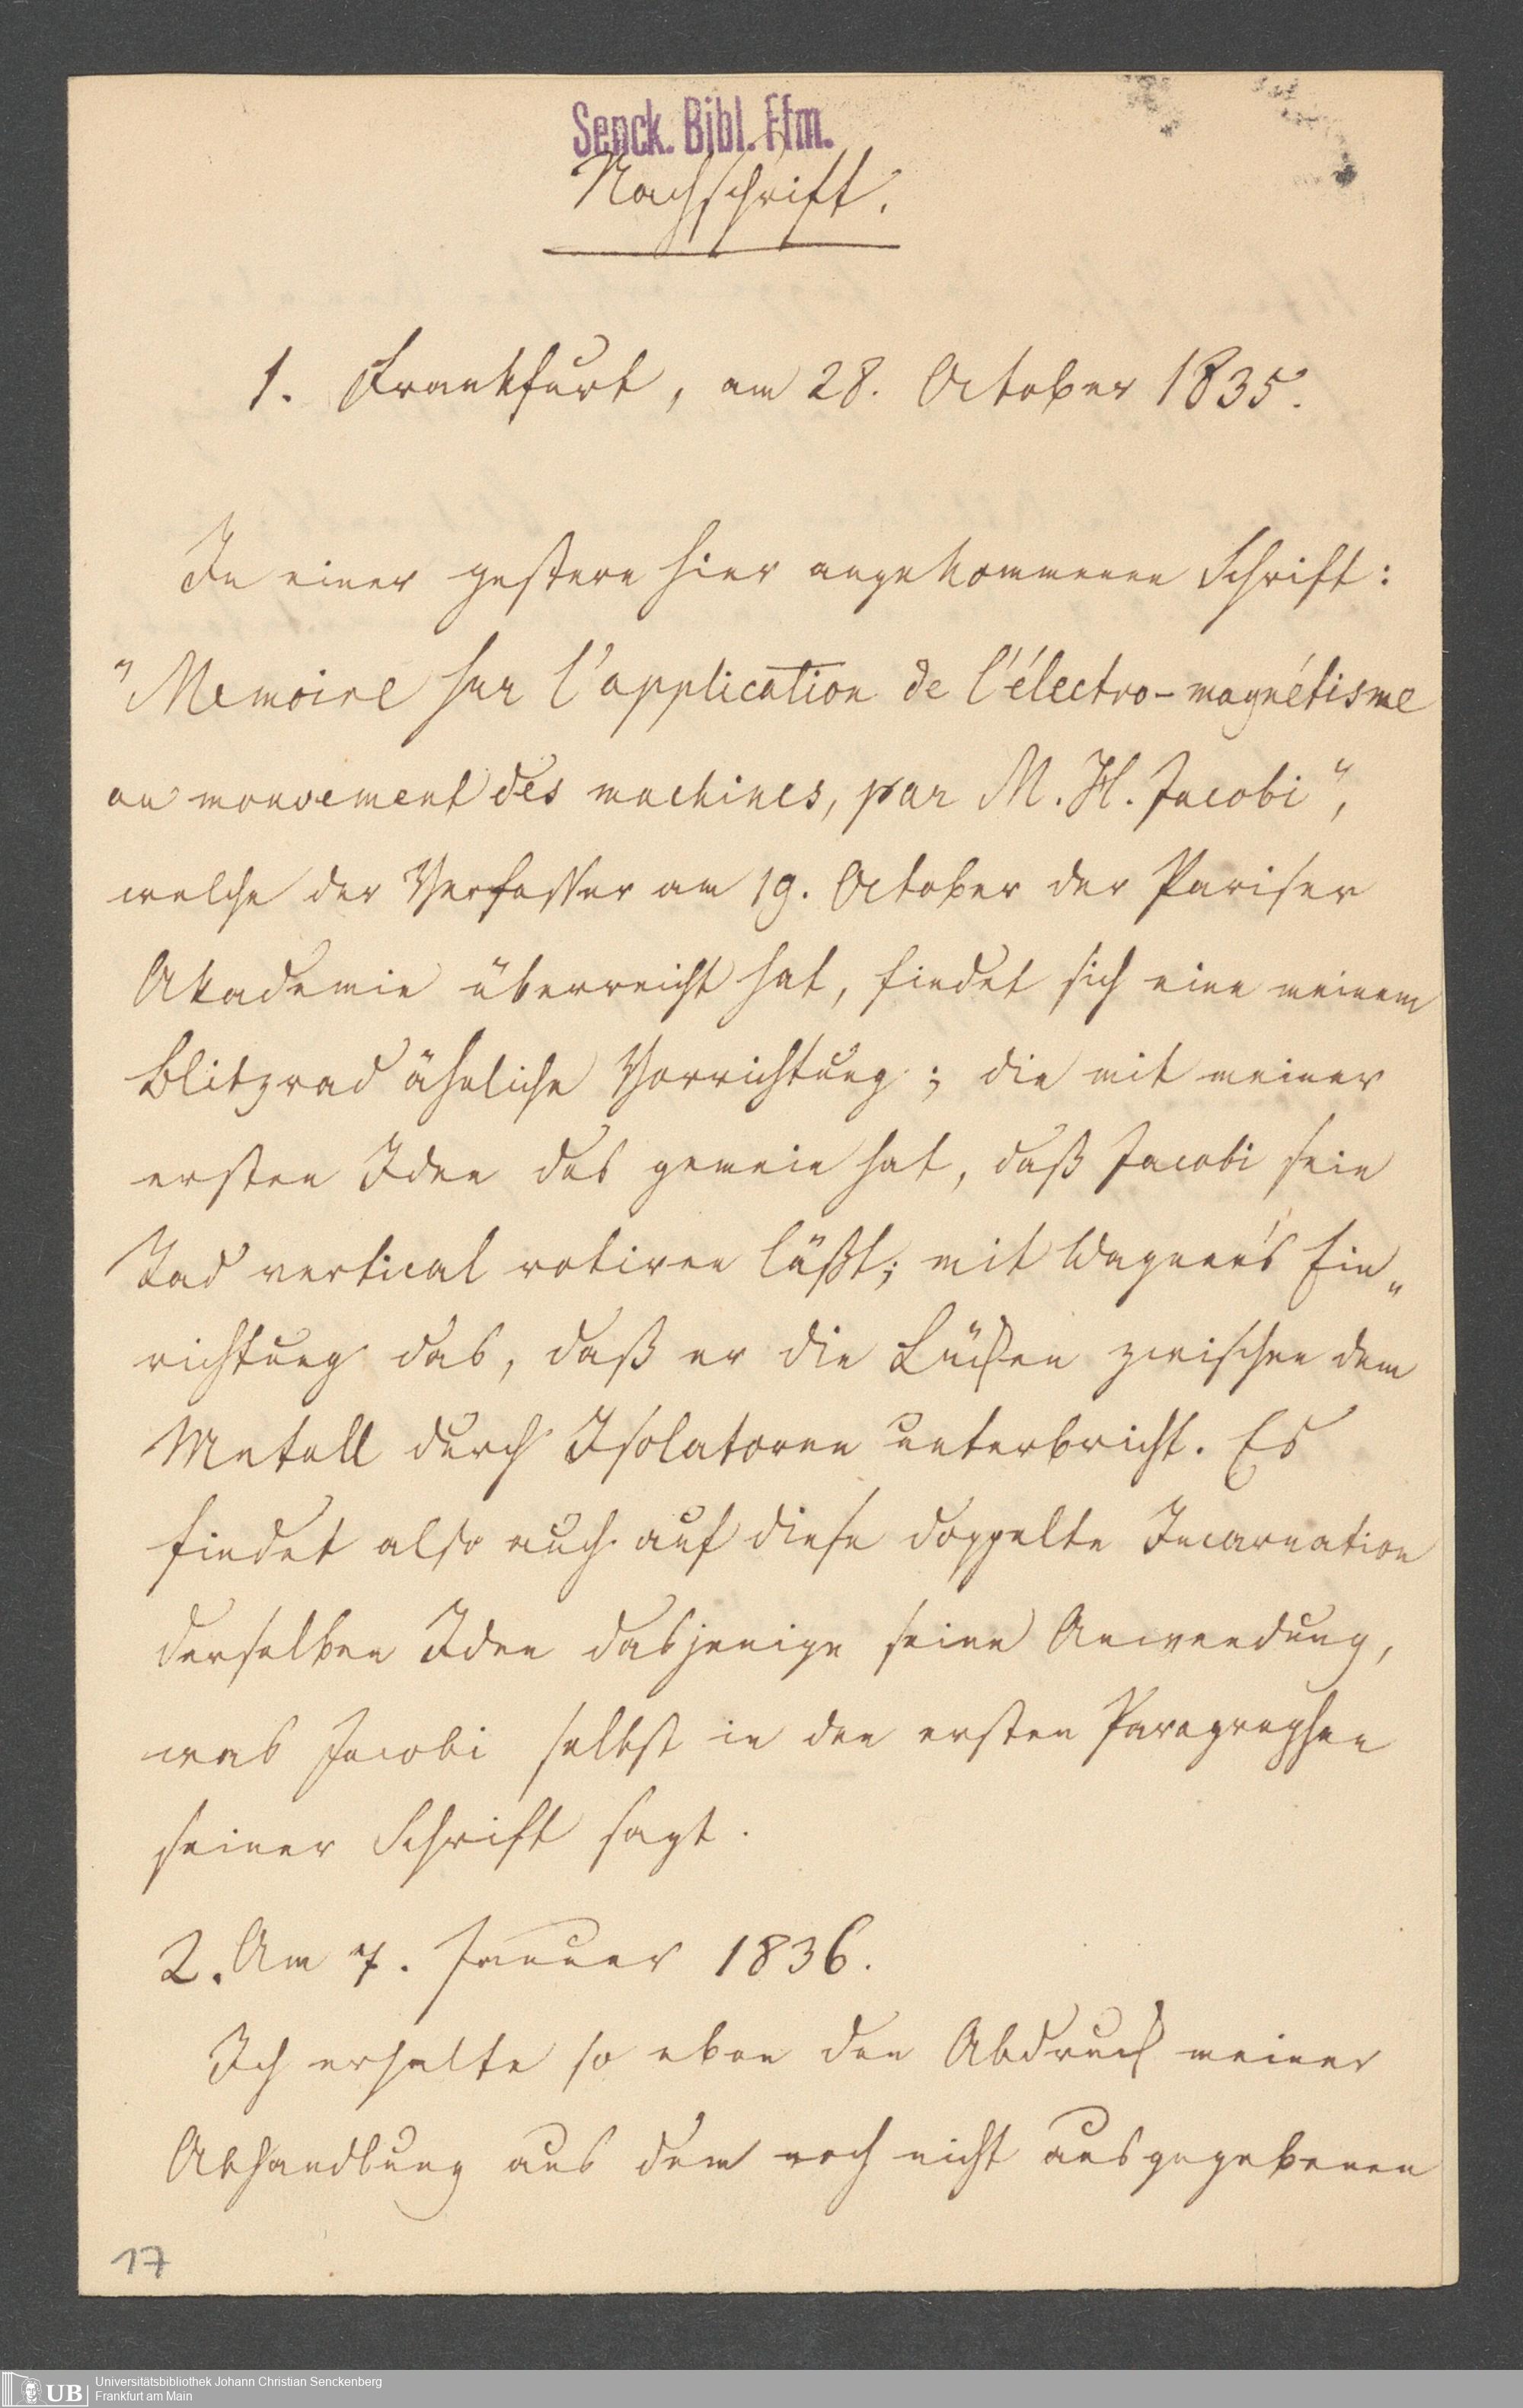 Senck. Bibl. Ffm.
Nachschrift.
1. Frankfurt, am 28. October 1835.
In einer gestern hier angekommenen Schrift:
"Memoire sur l'application de l'électro-magnétisme
au mouvement des machines, par M. H. Jacobi",
welche der Verfasser am 19. October der Pariser
Akademie überreicht hat, findet sich eine meinem
Blitzrad ähnliche Vorrichtung; die mit meiner
ersten Idee das gemein hat, daß Jacobi sein
Rad vertical rotiren läßt; mit Wagner's Ein„
richtung das, daß er die Lücken zwischen dem
Metall durch Isolatoren unterbricht. Es
findet also auch auf diese doppelte Incarnation
derselben Idee dasjenige seine Anwendung,
was Jacobi selbst in den ersten Paragraphen
seiner Schrift sagt.
2. Am 7. Januar 1836.
Ich erhalte so eben den Abdruck meiner
Abhandlung aus dem noch nicht ausgegebenen
17
UB Universitätsbibliothek Johann Christian Senckenberg
Frankfurt am Main